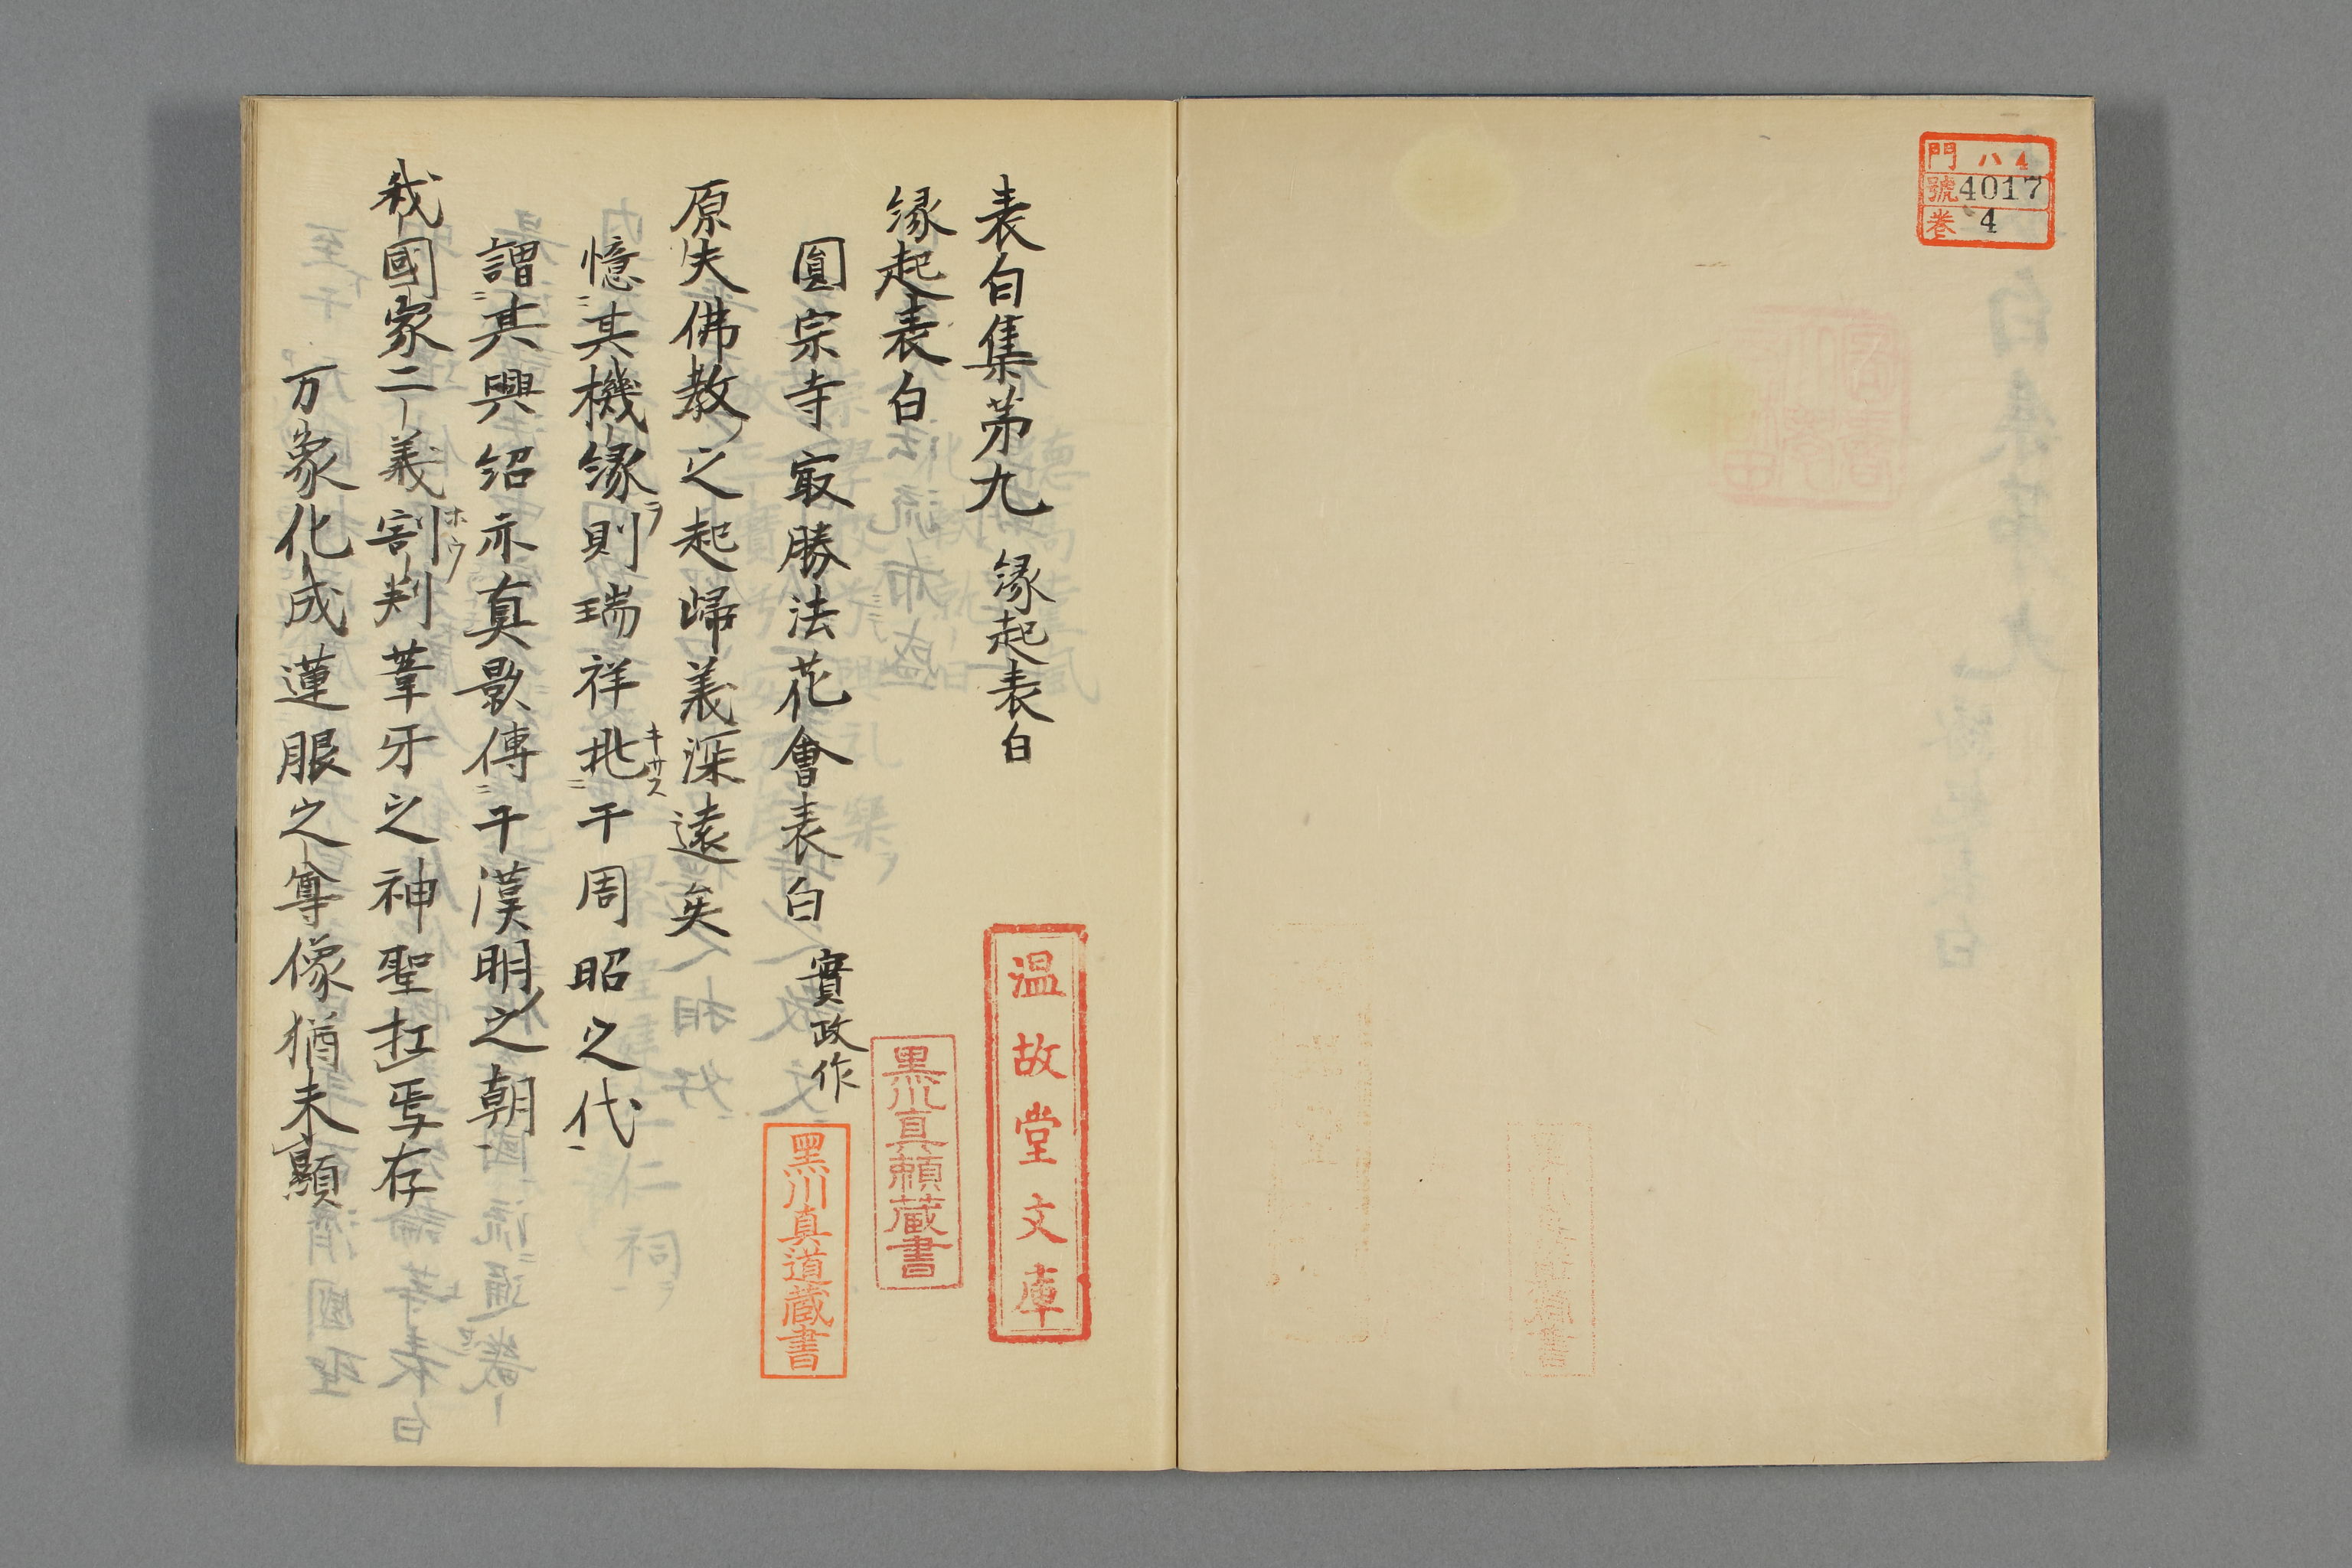 門 八4
號 4017
巻 4
表白集第九 縁起表白
縁起表白
圓宗寺㝡勝法花會表白 實政作
原夫佛教之起歸義深遠矣
憶其機縁則瑞祥兆干周昭之代
ラ
キサス
謂其興紹亦真影傳干漢明之朝
我國家二義割判葦牙之神聖扗焉存
ホウ
万象化成蓮眼之尊像猶未顯
温故堂文庫
黒川真頼蔵書
黒川真道蔵書